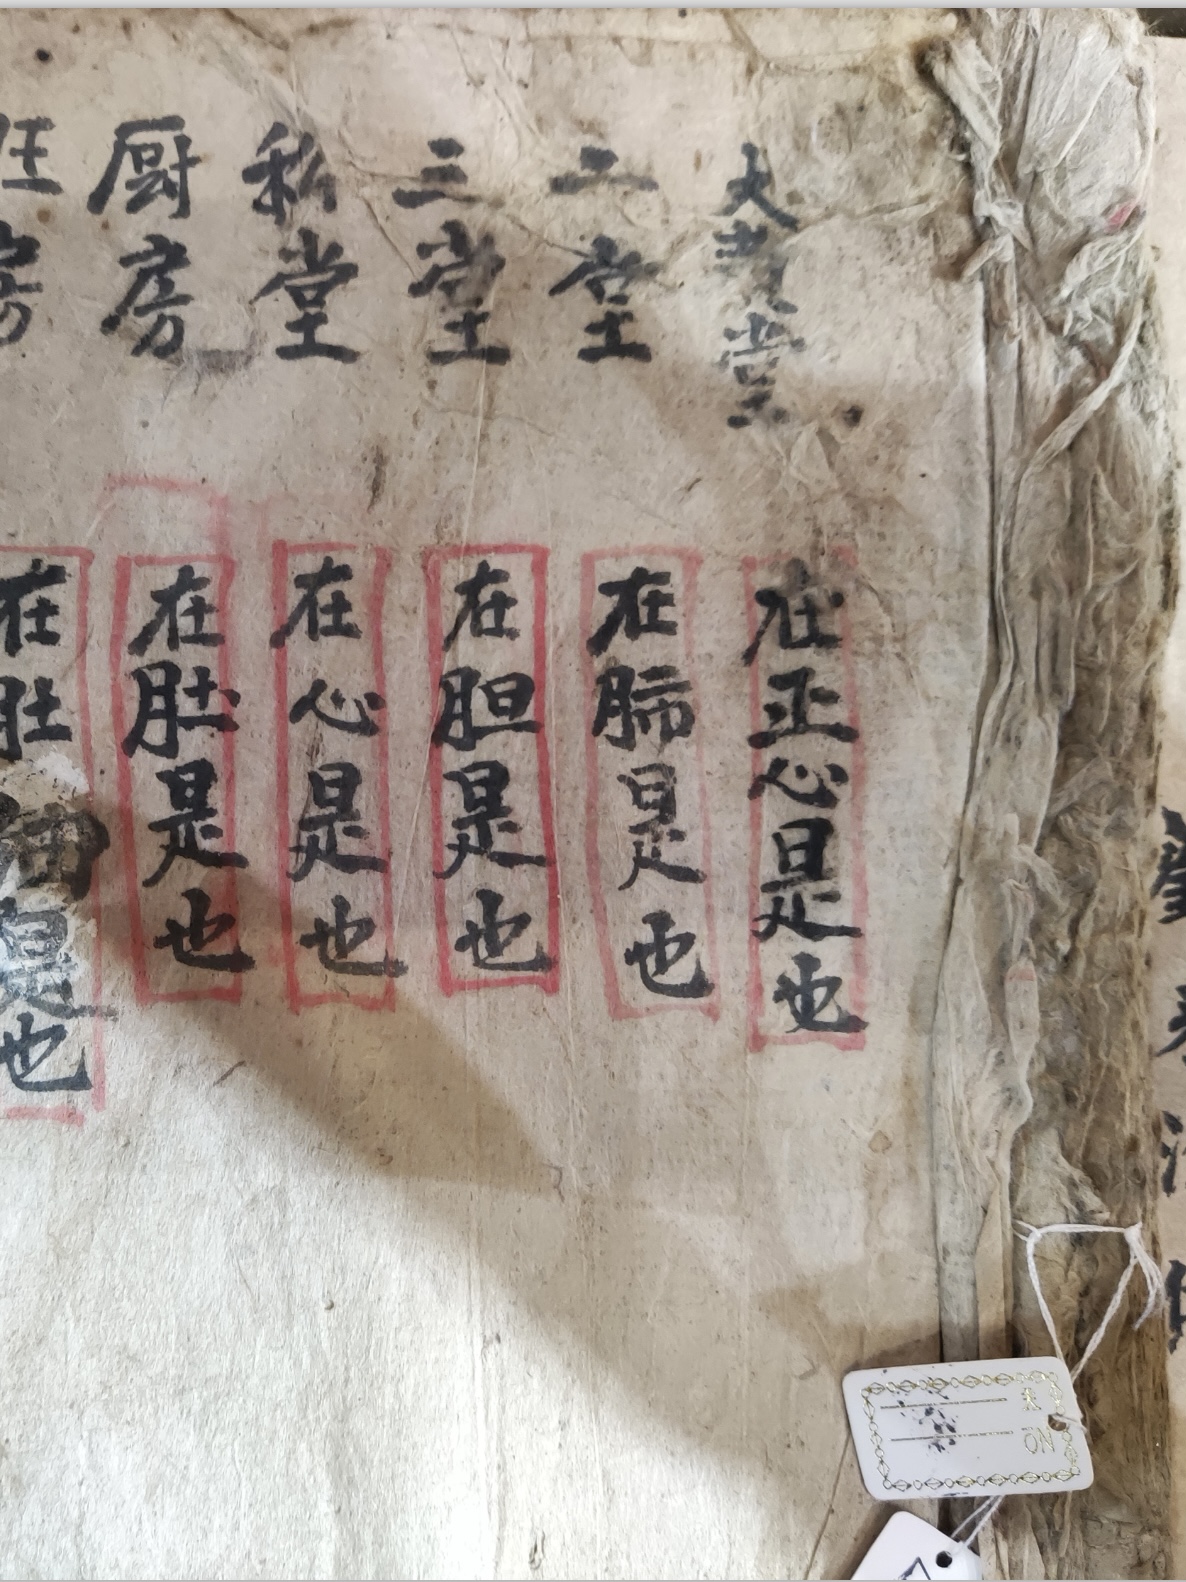 大堂
二堂
三堂
私堂
厨房
房
在正心是也
在肺是也
在胆是也
在心是也
在肚是也
在肚是也
NO